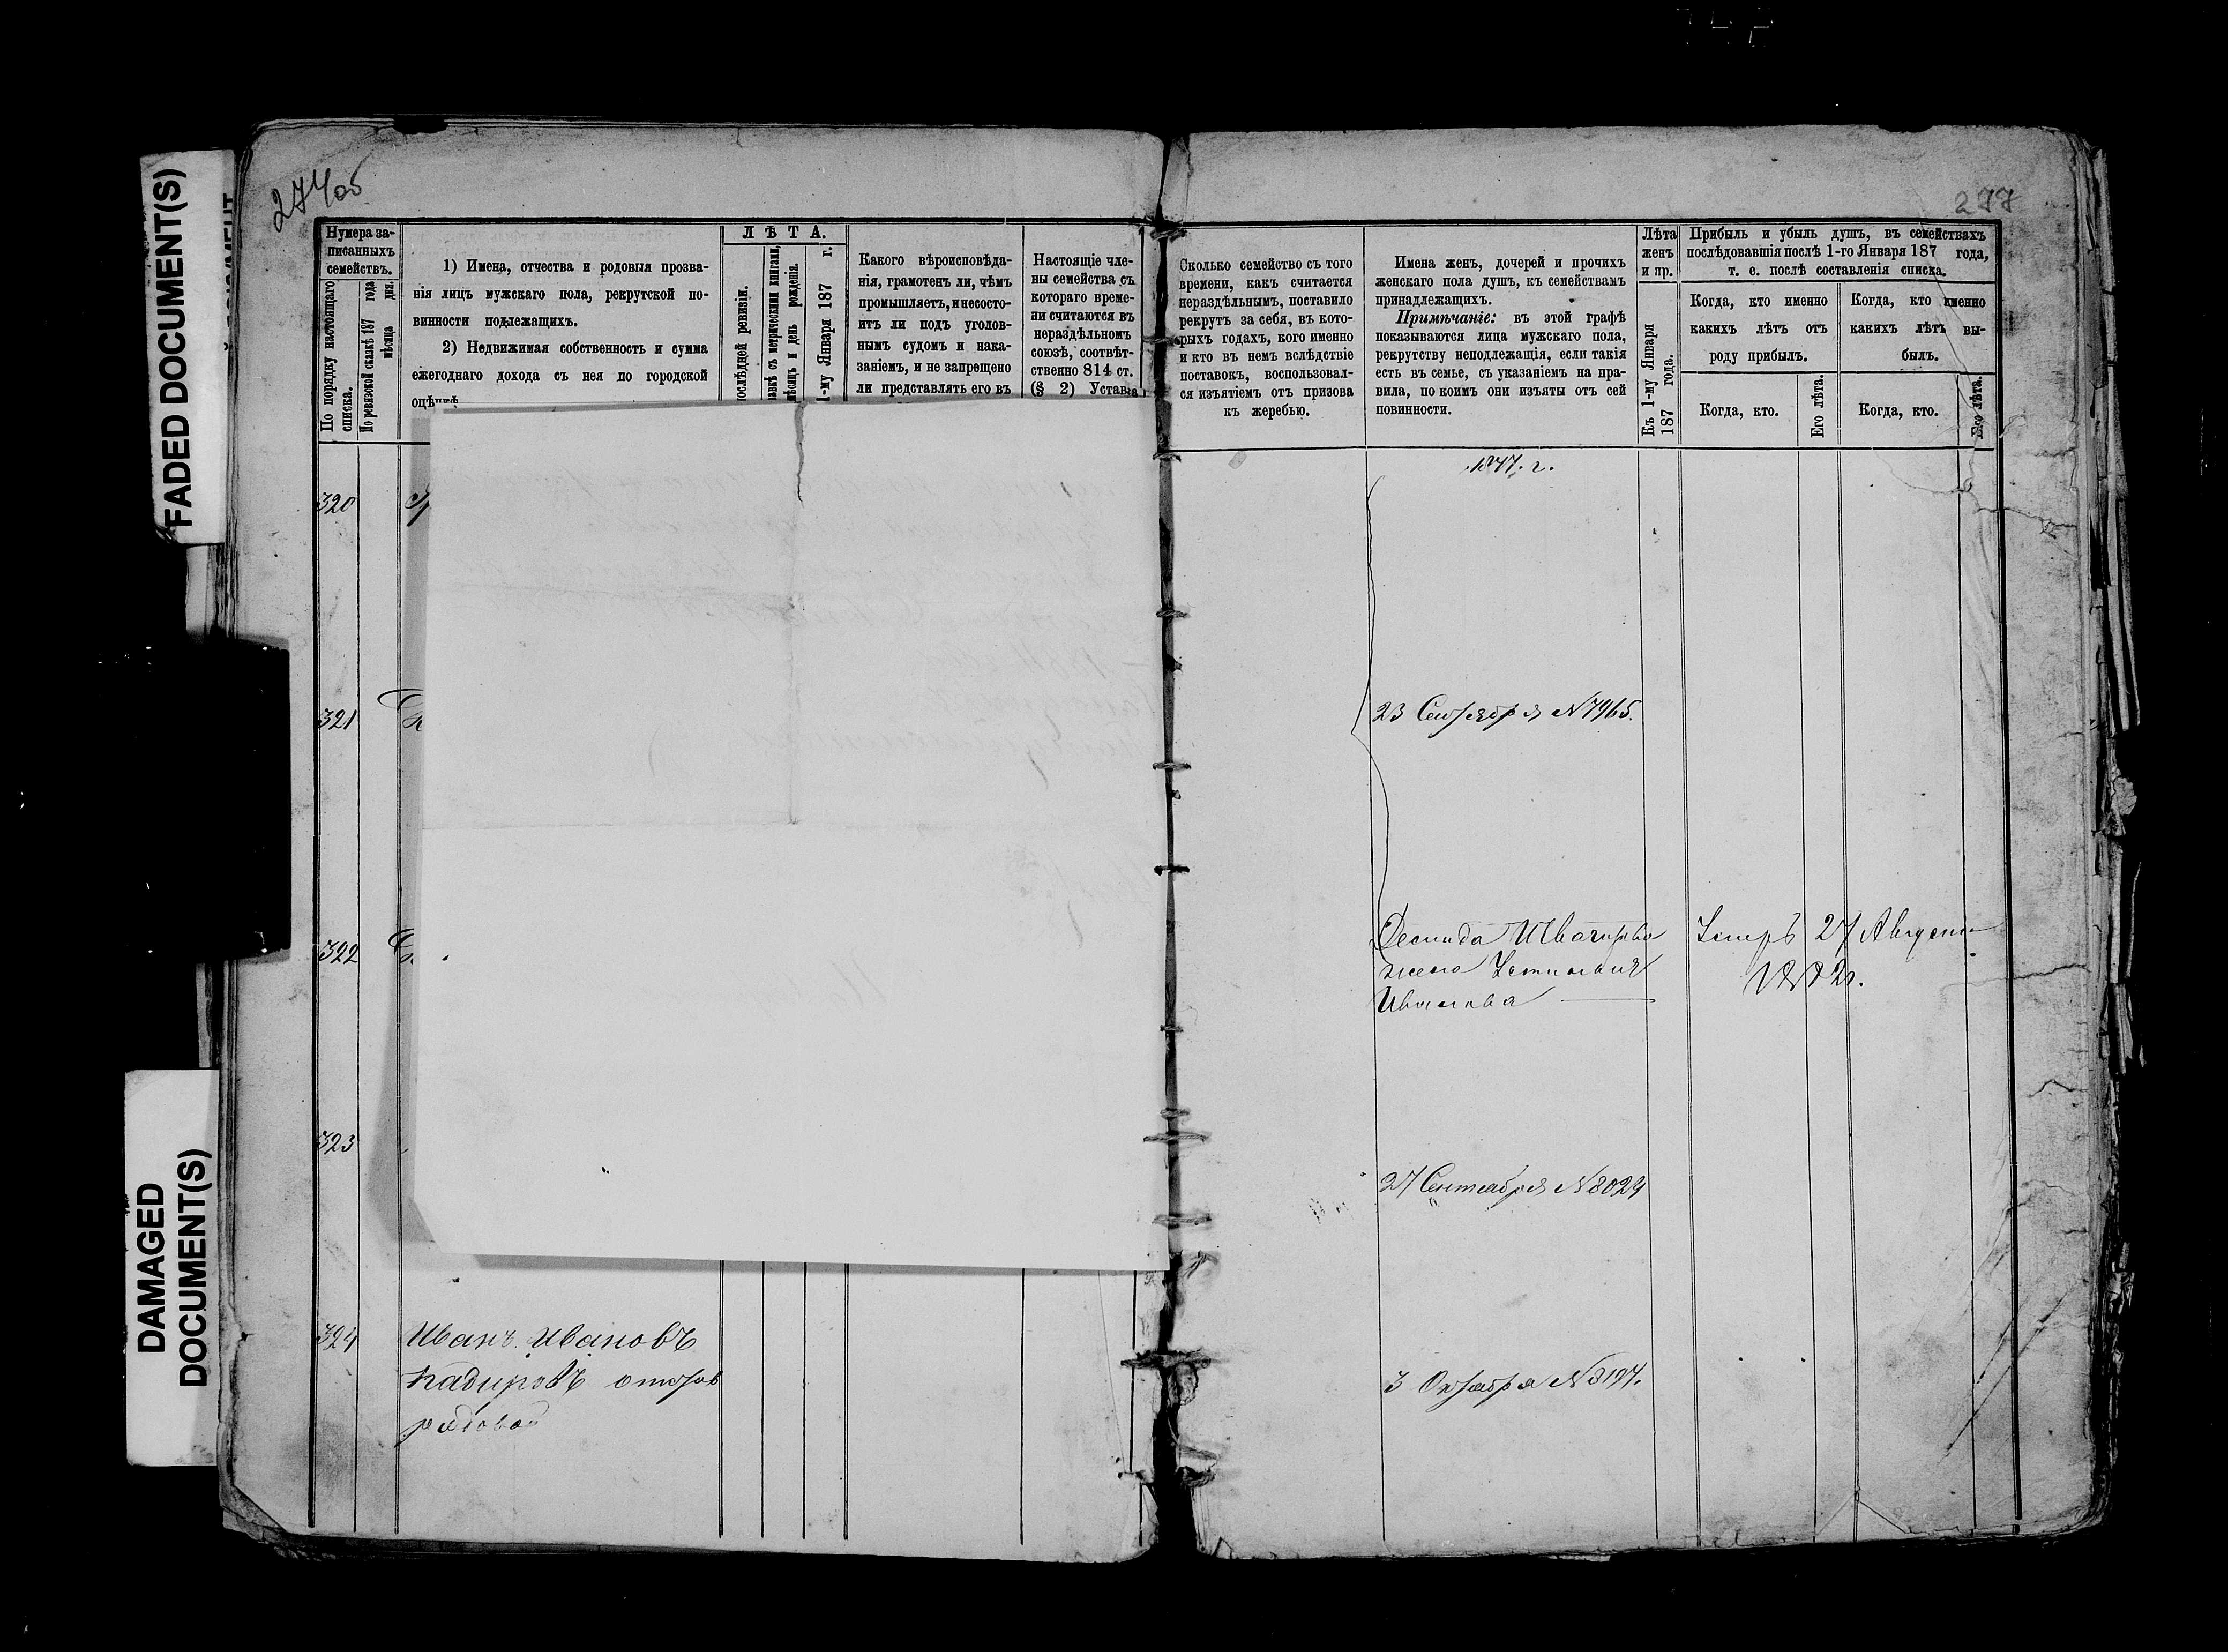 FADED DOCUMENT(S)
DAMAGED
DOCUMENT(S)
274об
Нумера за-
писанныхъ
семействъ.
По порядку настоящаго
списка.
По ревизской сказкѣ 187 года
мѣсяца дня.
1) Имена, отчества и родовыя прозва-
нія лицъ мужскаго пола, рекрутской по-
винности подлежащихъ.
2) Недвижимая собственность и сумма
ежегоднаго дохода съ нея по городской
оцѣнкѣ
ЛѢТА.
послѣдней ревизіи.
съ метрическими книгами,
мѣсяцъ и день рожденія.
1-му Января 187 г.
Какого вѣроисповѣда-
нія, грамотенъ ли, чѣмъ
промышляетъ, и несосто-
итъ ли подъ уголов-
нымъ судомъ и нака-
заніемъ, и не запрещено
ли представлять его въ
Настоящіе чле-
ны семейства съ
котораго време-
ни считаются въ
нераздѣльномъ
союзѣ, соотвѣт-
ственно 814 ст.
(§ 2) Устава
320
321
322
323
324
Иванъ Ивановъ
Кадировъ
рядовой
277
Сколько семейство съ того
времени, какъ считается
нераздѣльнымъ, поставило
рекрутъ за себя, въ кото-
рыхъ годахъ, кого именно
и кто въ немъ вслѣдствіе
поставокъ, воспользовал-
ся изъятіемъ отъ призова
къ жеребью.
Имена женъ, дочерей и прочихъ
женскаго пола душъ, къ семействамъ
принадлежащихъ.
Примѣчаніе: въ этой графѣ
показываются лица мужскаго пола,
рекрутству неподлежащія, если такія
есть въ семье, съ указаніемъ на пра-
вила, по коимъ они изъяты отъ сей
повинности.
Лѣта
женъ
и пр.
Къ 1-му Января
187 года.
Прибыль и убыль душъ, въ семействахъ
послѣдовавшія послѣ 1-го Января 187 года,
т. е. послѣ составленія списка.
Когда, кто именно
какихъ лѣтъ отъ
роду прибылъ.
Когда, кто именно
какихъ лѣтъ вы-
былъ.
Когда, кто.
Его лѣта.
Когда, кто.
Его лѣта.
1877. г.
23 Сентября N 7965.
жена Устинья
Иванова
27
1882г.
27 Сентября N 8029
3 Октября N 8197.